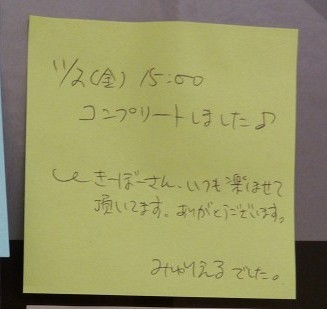 11/2(金) 15:00
コンプリートしました♪
きーぼーさん、いつも楽しませて
頂いてます。ありがとうございます。
みゅりえるでした。